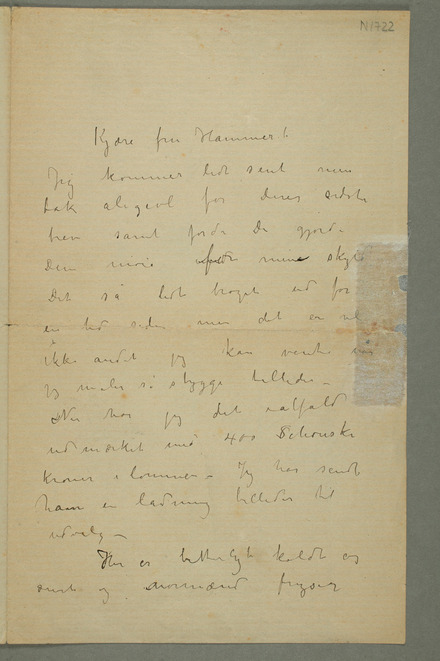 N1722
Kjære fru Hammer!
Jeg kommer lidt sent men
tak aligevl for Deres sidste
brev samt fordi De gjorde
Dem møie for mine skyld
Det så lidt broget ud for
en tid siden men det er vel
ikke andet jeg kan vente når
jeg maler så stygge billeder –
Nu har jeg det ialfald
udmærket med 400 Schouske
kroner i lommen – Jeg har sendt
ham en ladning billeder til
udvalg –
Her er koldt og
surt og nordmænd fryser